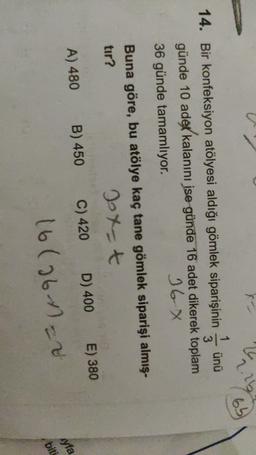 14. Bir konfeksiyon atölyesi aldığı gömlek siparişinin 1/3 ünü
günde 10 adet kalanını ise günde 16 adet dikerek toplam
36 günde tamamlıyor.
36-x
Buna göre, bu atölye kaç tane gömlek siparişi almış-
tır?
30x=t
A) 480 B) 450 C) 420 D) 400 E) 380
16(36-x)=2
65
ayfa
bili